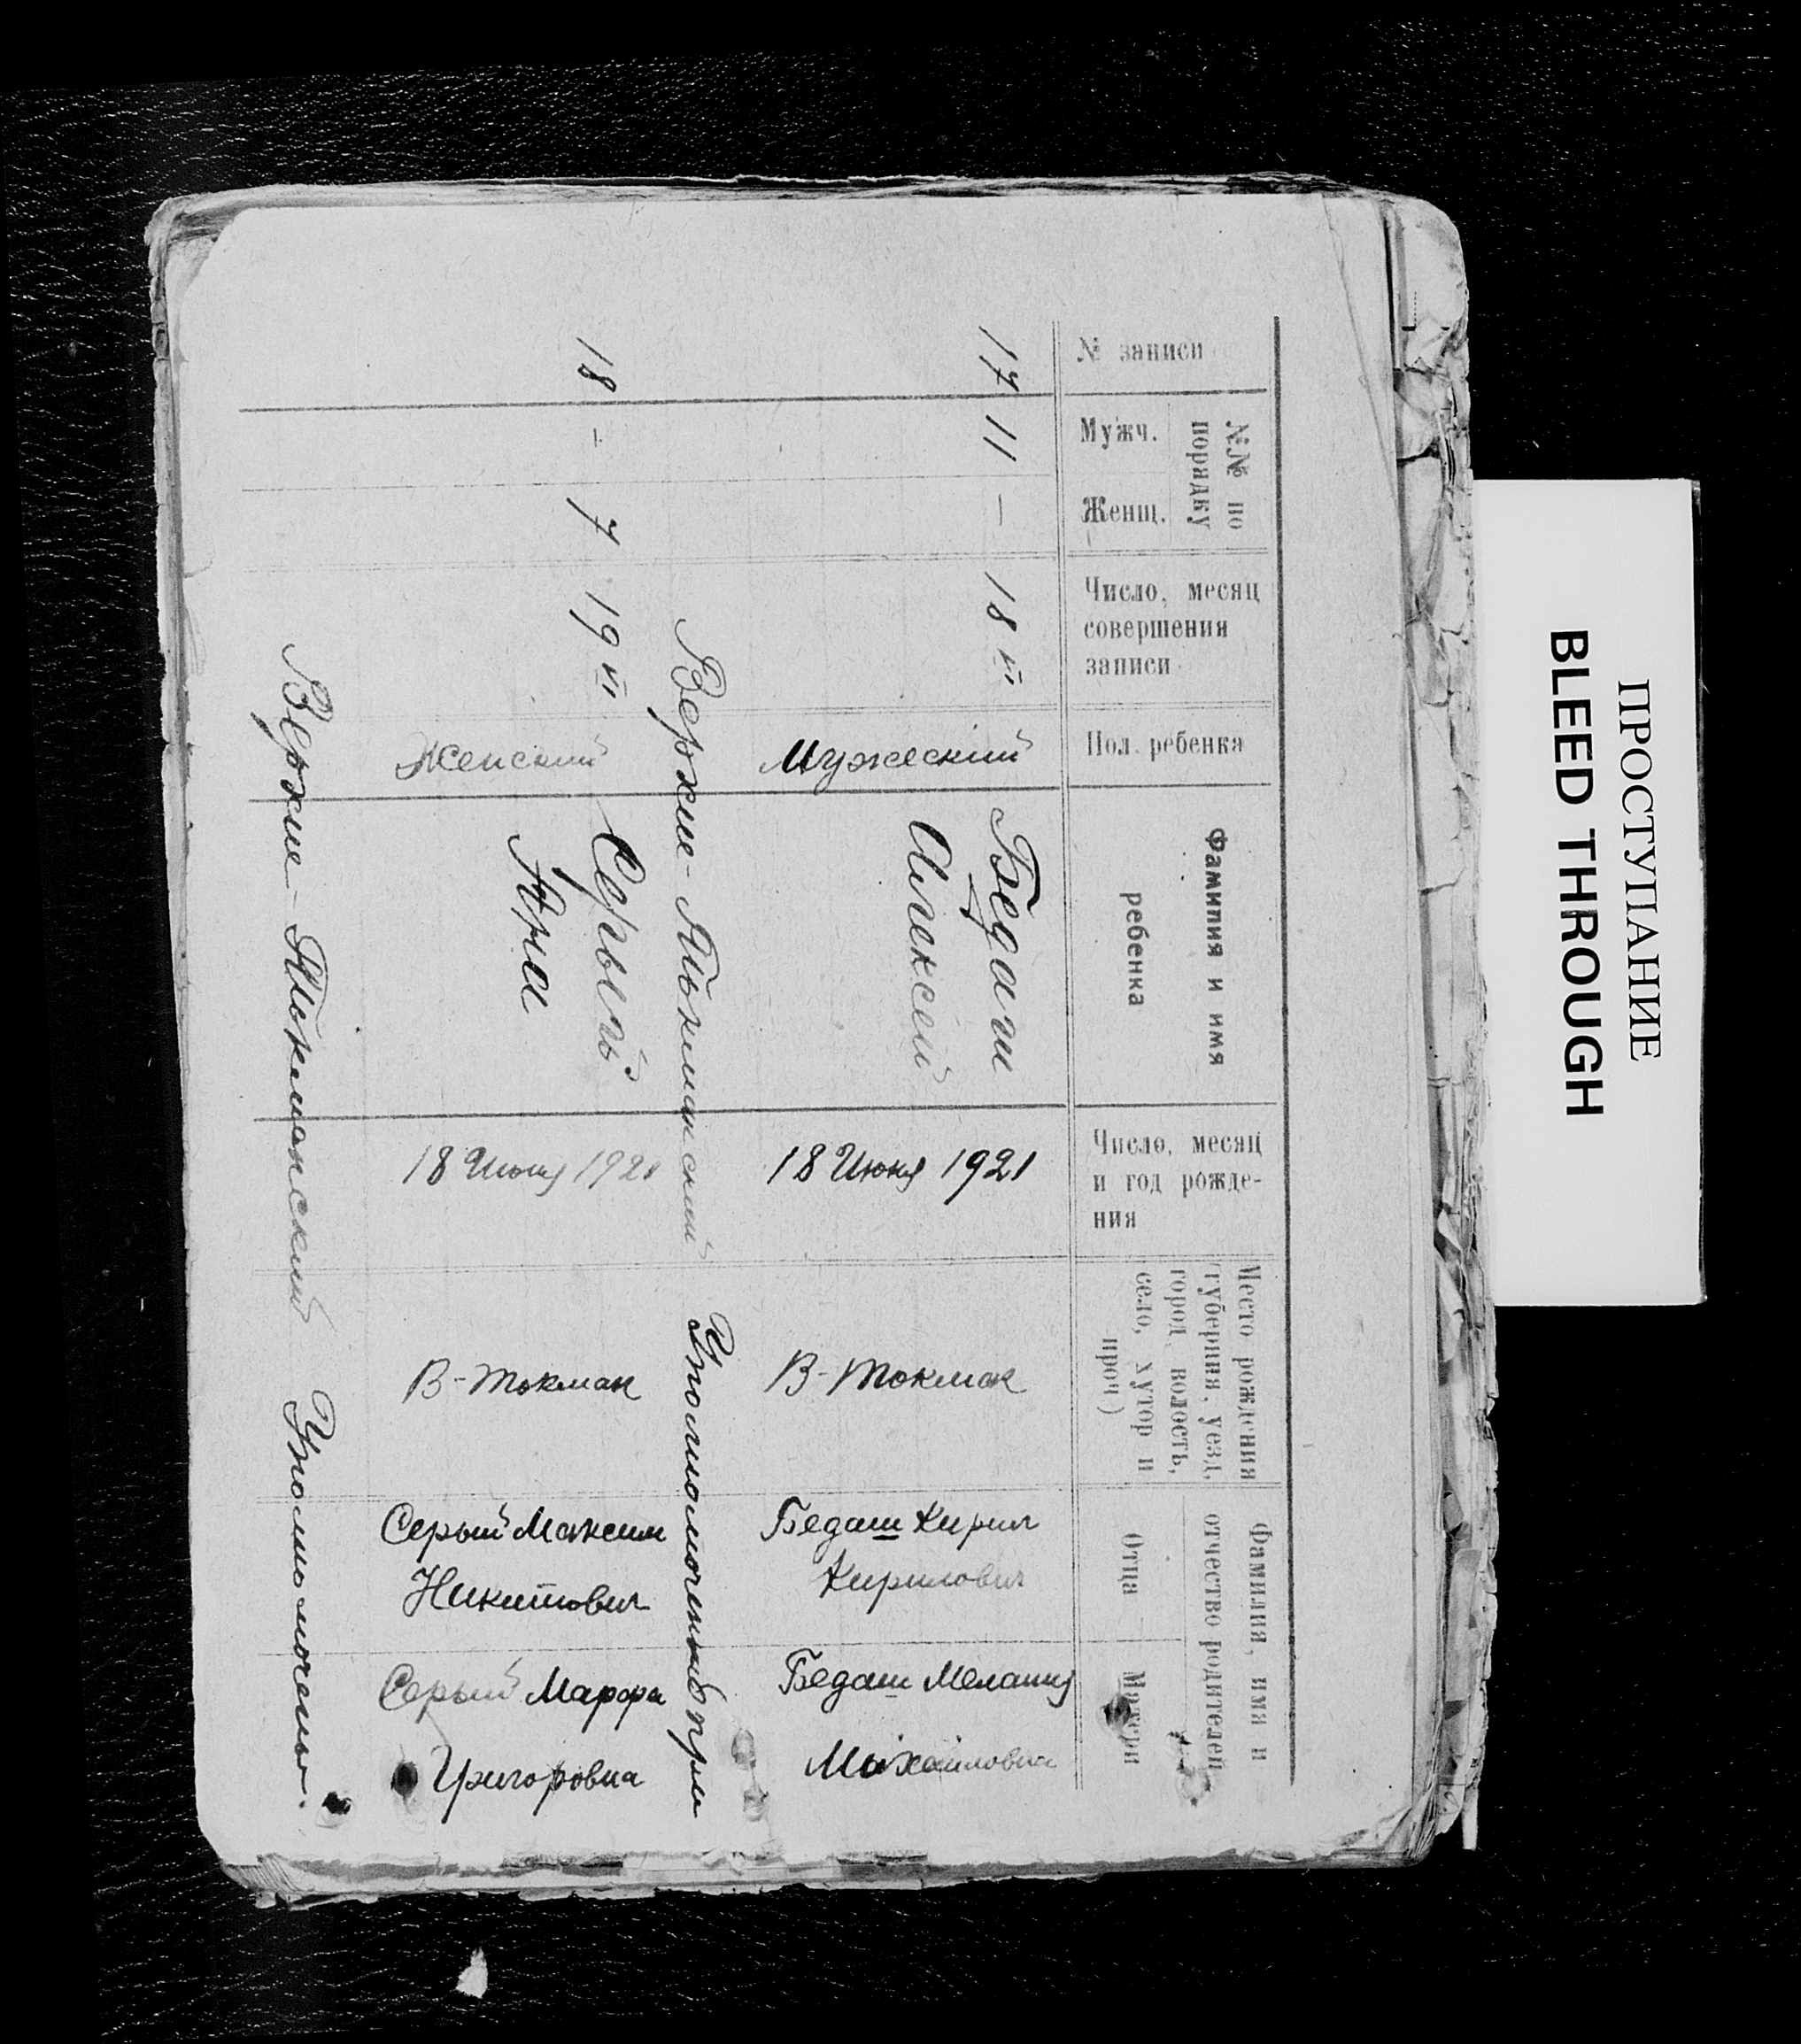 № записи
№№ по
порядку
Мужч.
Женщ.
Число, месяц
совершения
записи
Пол ребенка
Фамилия и имя
ребенка
Число, месяц
и год рожде-
ния
Место рождения
(губерния, уезд,
город, волость,
село, хутор и
проч)
Фамилия, имя и
отчество родителей
Отца
Матери
17
11
—
18 VI
Мужеский
Бедаш
Алексей
18 Июня 1921
В-Токмак
Бедаш Кирил
Кирилович
Бедаш Мелания
Михайловна
Верхне-Токмакский Уполномоченный при
18
–
7
19 VI
Женский
Серый
Ярна
18 Июня 1921
В-Токмак
Серый Максим
Никитович
Серый Марфа
Григоровна
Верхне-Токмакский Уполномочены.
ПРОСТУПАНИЕ
BLEED THROUGH